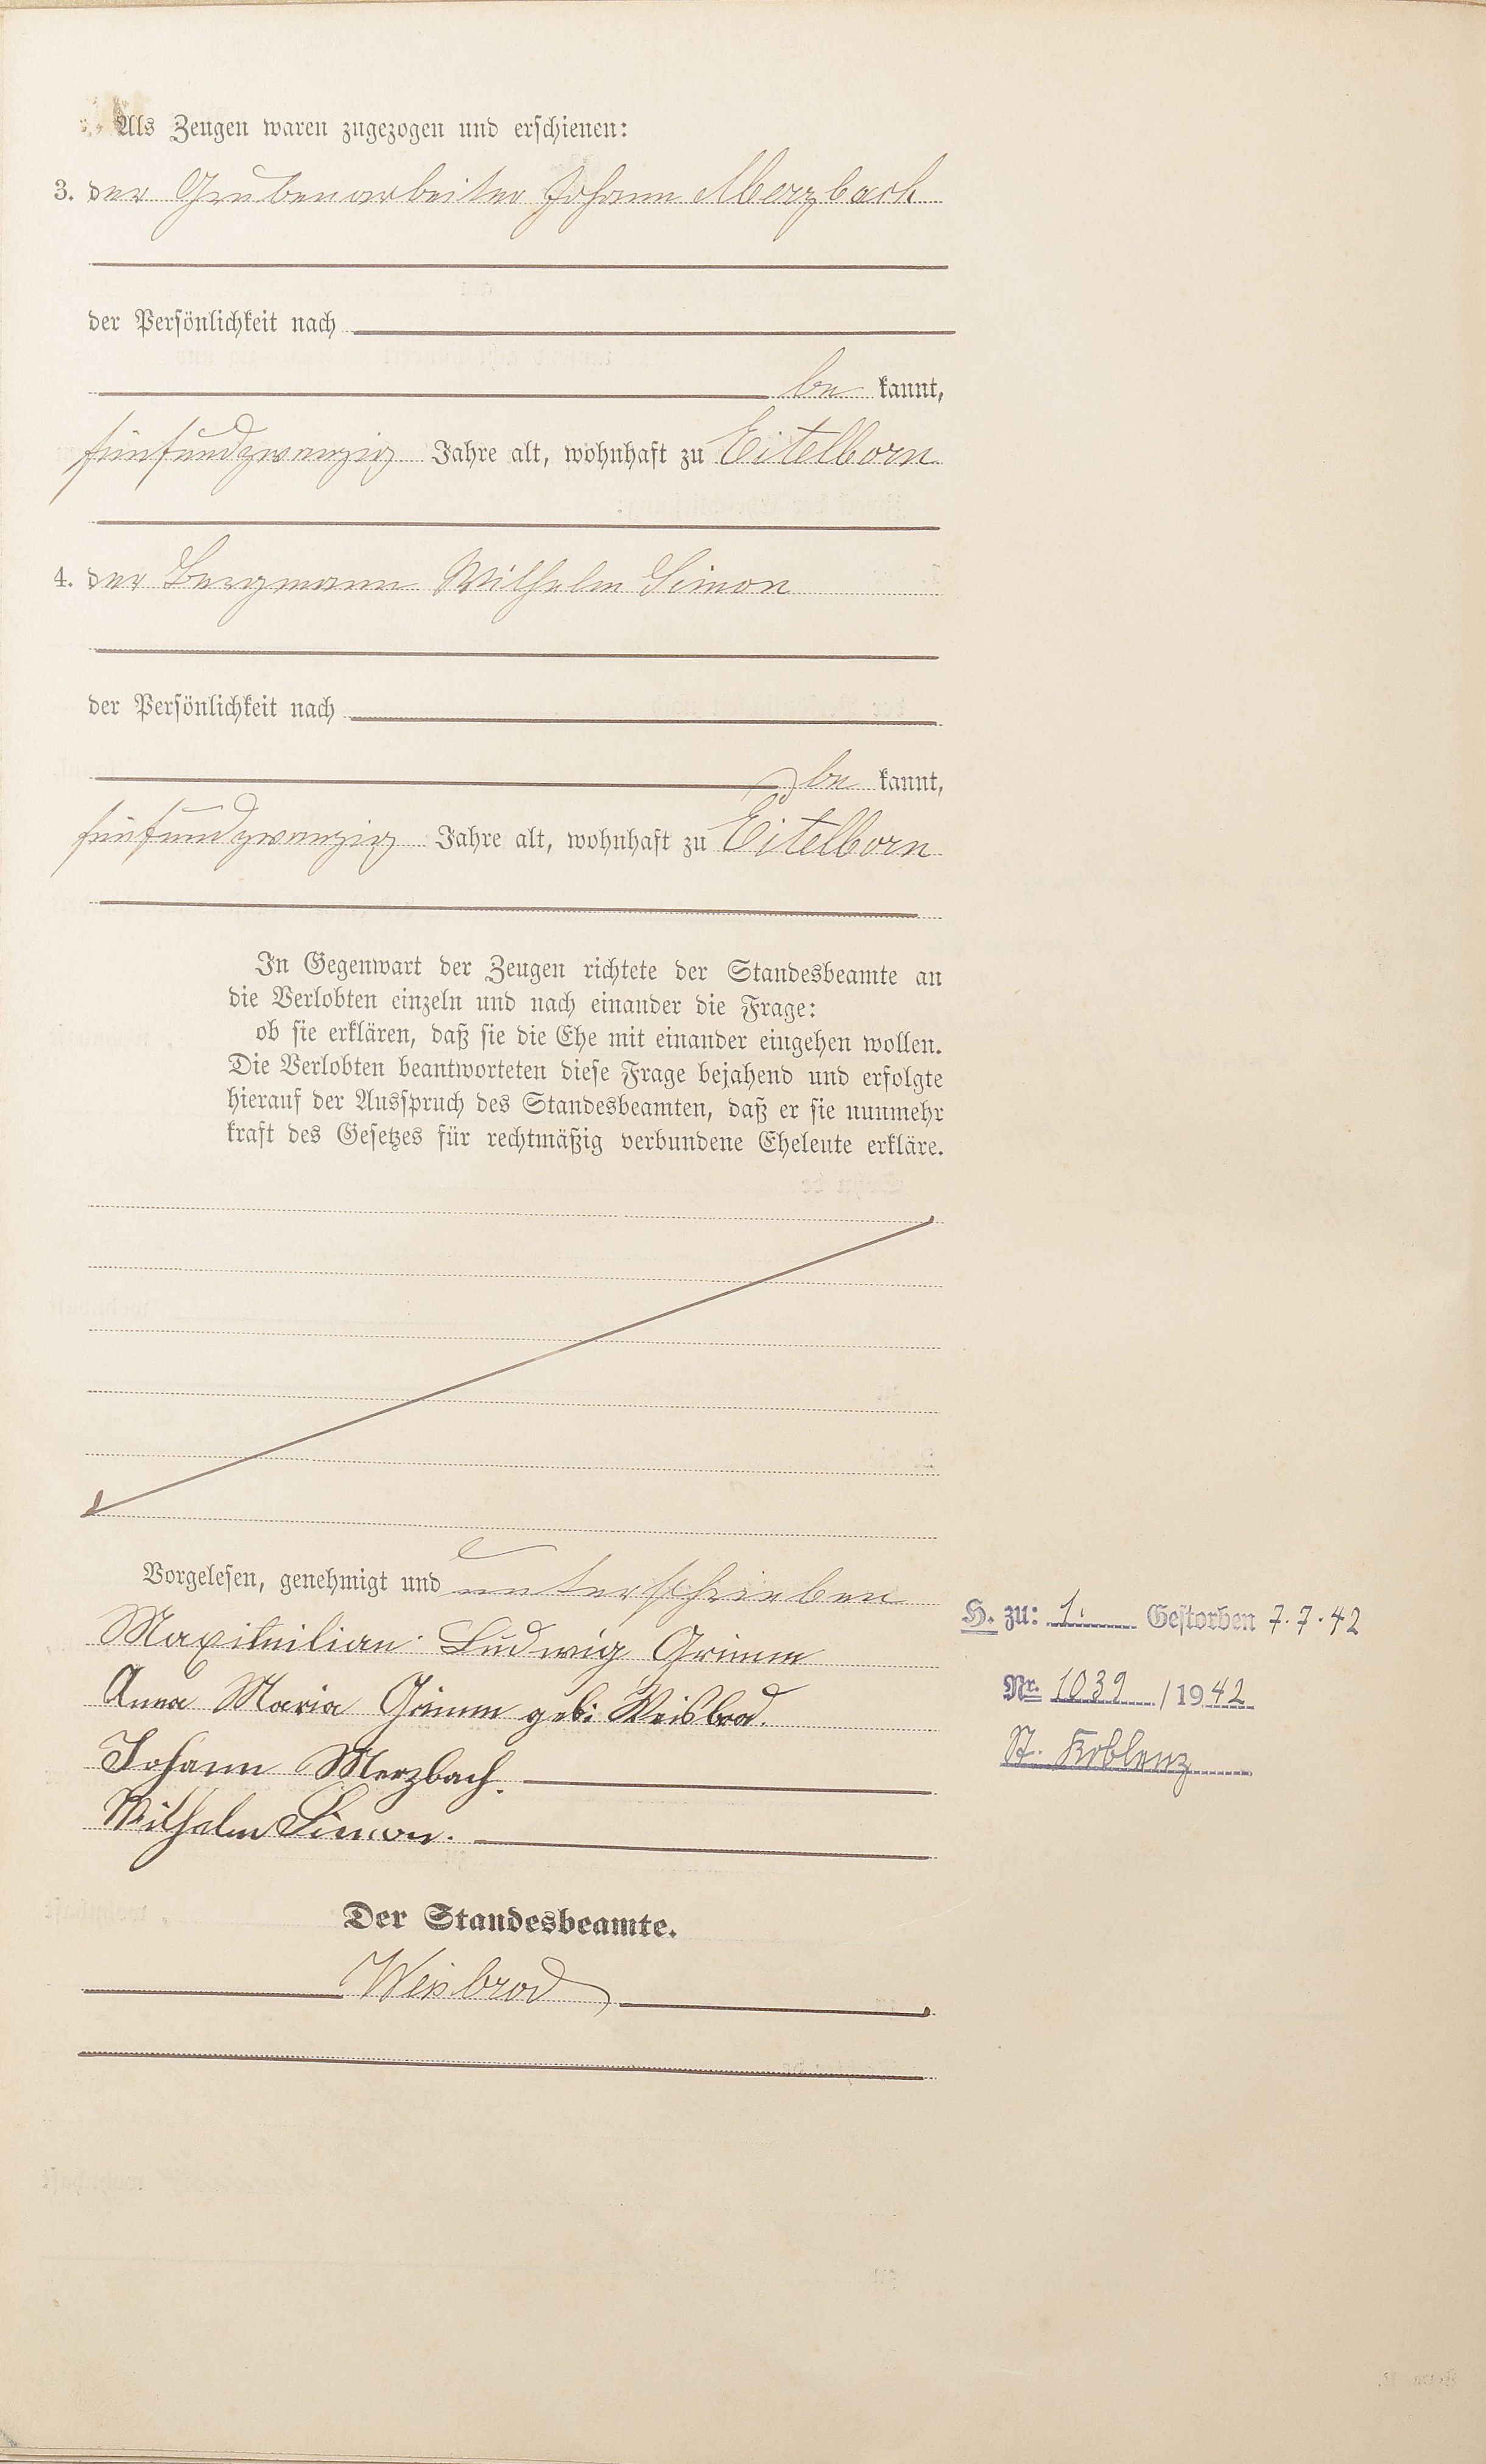 Als Zeugen waren zugezogen und erschienen:
3. der Grubenarbeiter Johann Merzbach
der Persönlichkeit nach
be kannt,
fünfundzwanzig Jahre alt, wohnhaft zu Eitelborn
4. der Bergmann Wilhelm Simon
der Persönlichkeit nach
be kannt,
fünfundzwanzig Jahre alt, wohnhaft zu Eitelborn
In Gegenwart der Zeugen richtete der Standesbeamte an
die Verlobten einzeln und nach einander die Frage:
ob sie erklären, daß sie die Ehe mit einander eingehen wollen.
Die Verlobten beantworteten diese Frage bejahend und erfolgte
hierauf der Ausspruch des Standesbeamten, daß er sie nunmehr
kraft des Gesetzes für rechtmäßig verbundene Eheleute erkläre.
Vorgelesen, genehmigt und unterschrieben
Maximilian Ludwig Grimm
Anna Maria Grimm geb. Weisbrod.
Johann Merzbach.
Wilhelm Simon.
Der Standesbeamte.
Weisbrod
H. zu: 1. Gestorben 7.7.42
Nr. 1039 / 1942
St. Koblenz